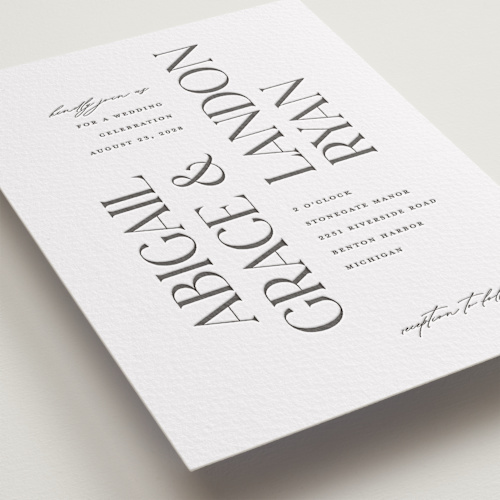 kindly join us
FOR A WEDDING
CELEBRATION
AUGUST 23, 2028
ABIGAIL & LANDON
GRACE RYAN
2 O'CLOCK
STONEGATE MANOR
2251 RIVERSIDE ROAD
BENTON HARBOR
MICHIGAN
reception to